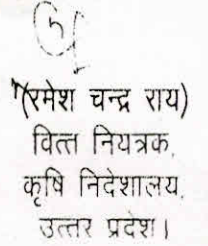 (रमेश चन्द्र राय)
वित्त नियत्रक,
कृषि निदेशालय,
उत्तर प्रदेश।